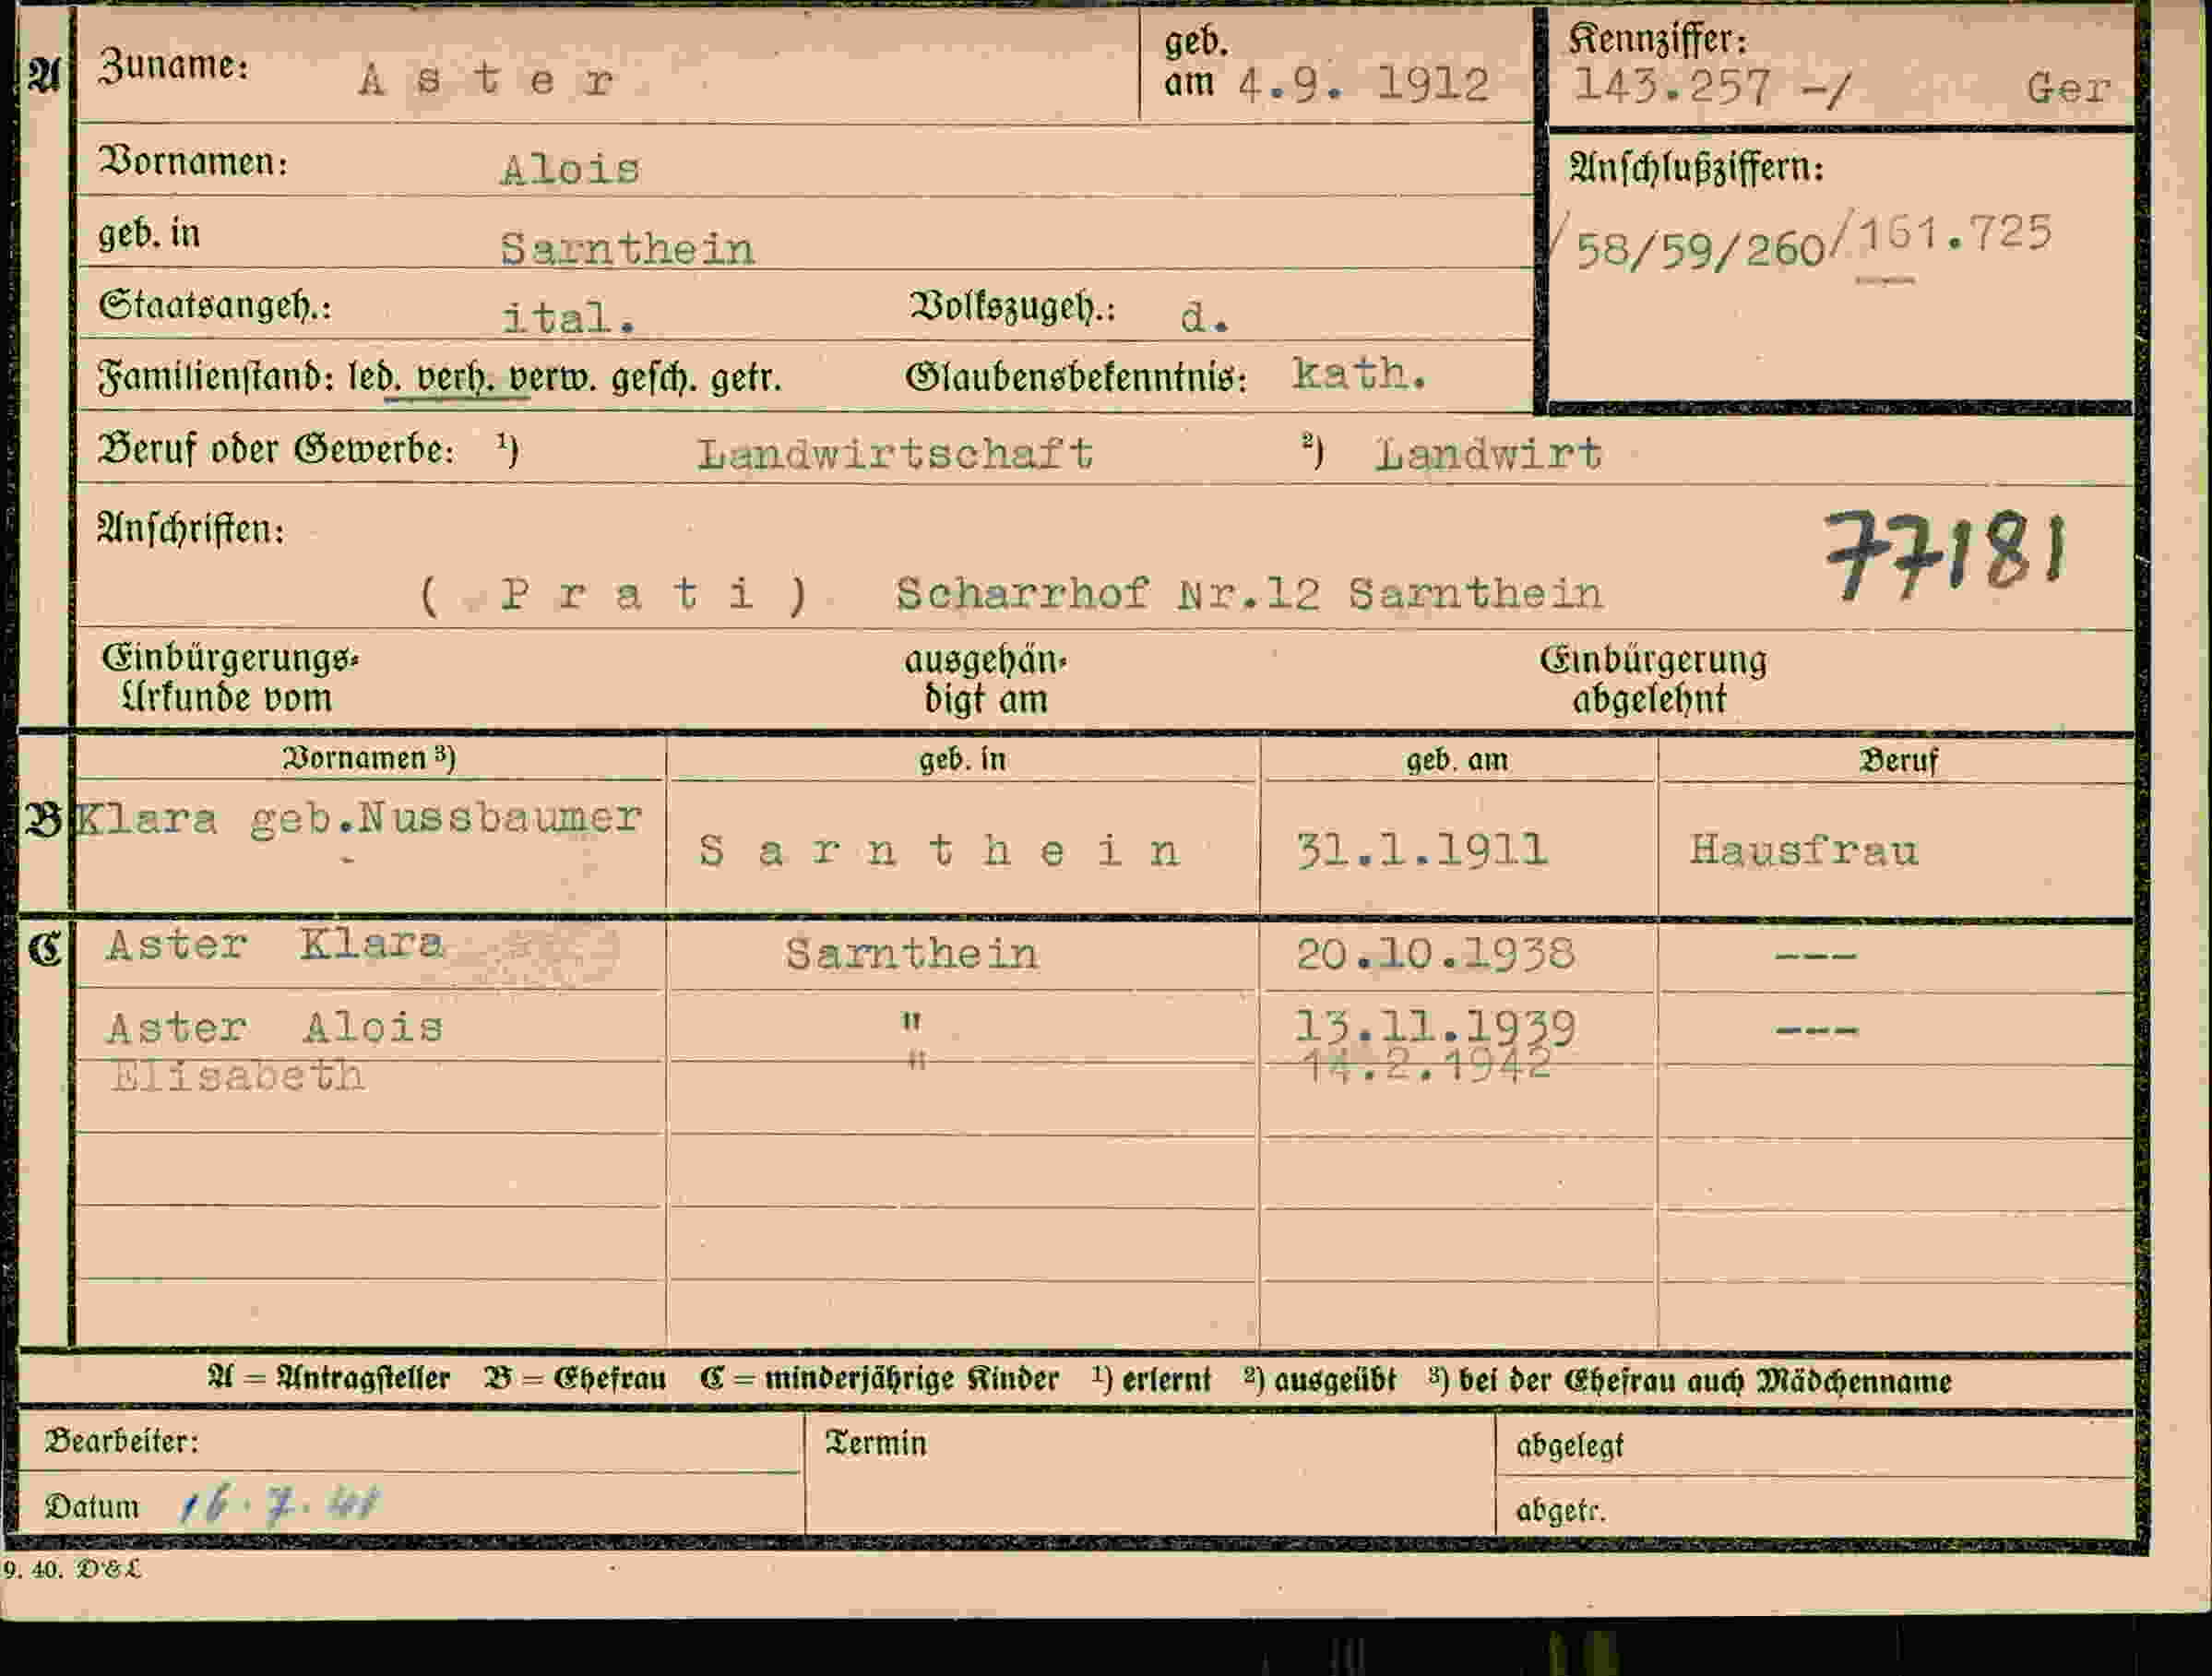 A Zuname: Aster geb. am 4.9. 1912 Kennziffer: 143.257 -/ Ger
Vornamen: Alois Anschlußziffern:
geb. in Sarnthein / 58/59/260/161.725
Staatsangeh.: ital. Volkszugeh.: d.
Familienstand: led. verh. verw. gesch. getr. Glaubensbekenntnis: kath.
Beruf oder Gewerbe: ¹) Landwirtschaft ²) Landwirt
Anschriften: 77181
( Prati ) Scharrhof Nr.12 Sarnthein
Einbürgerungs- ausgehän- Einbürgerung
Urkunde vom digt am abgelehnt
Vornamen ³) geb. in geb. am Beruf
B Klara geb.Nussbaumer Sarnthein 31.1.1911 Hausfrau
C Aster Klara Sarnthein 20.10.1938 ---
Aster Alois " 13.11.1939 ---
Elisabeth " 14.2.1942
A = Antragsteller B = Ehefrau C = minderjährige Kinder ¹) erlernt ²) ausgeübt ³) bei der Ehefrau auch Mädchenname
Bearbeiter: Termin abgelegt
Datum 16.7.41 abgetr.
9. 40. D&L